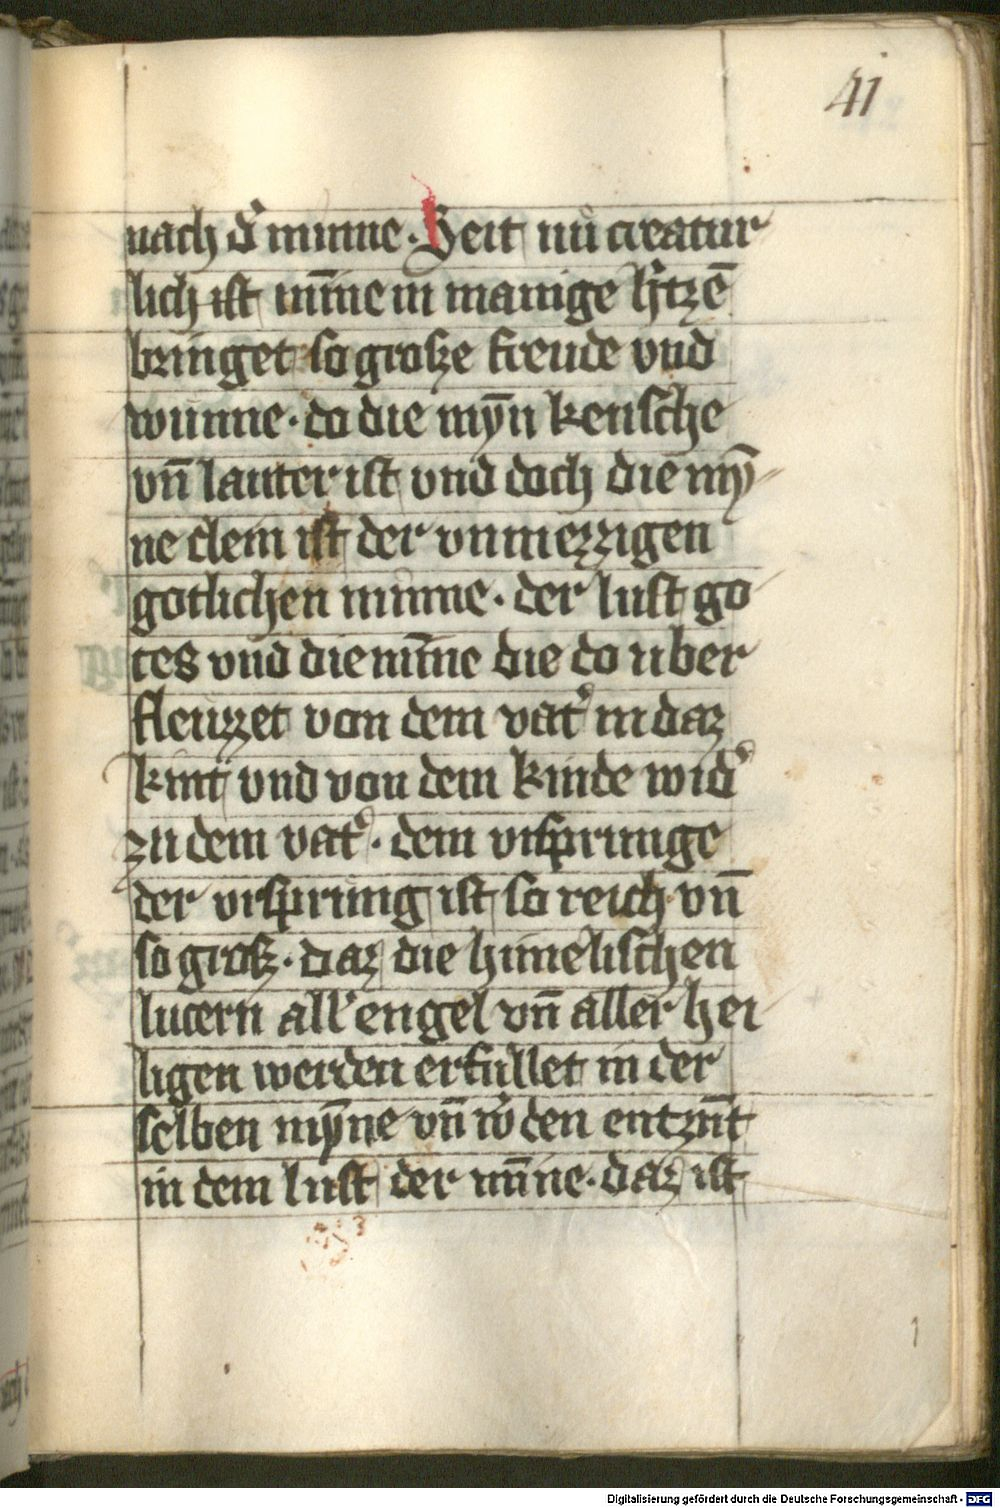 41
nach d᷑ minne · Seit nu creatur
lich ist mı̄ne in manige h᷑tzē
bringet so grosze freude vnd
wunne · do die myn̄ keusche
vn̄ lauter ist vnd doch die my̅
ne clein ist der vnmezzigen
gotlichen minne · der lust go
tes vnd die mı̄ne die do uber
fleuzzet von dem vat᷑ in daz
kint vnd von dem kinde wid᷑
zu dem vat᷑ · dem vrsprunge
der vrsprung ist so reich vn̄
so grosz · daz die himelischen
lucern all᷑ engel vn̄ aller hei
ligen werden erfullet in der
selben my̅ne vn̄ w᷑den entzūt
in dem lust der mı̄ne · daz ist
1
Digitalisierung gefördert durch die Deutsche Forschungsgemeinschaft - DFG